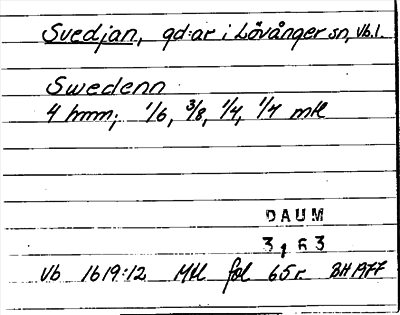 Svedjan, gd:ar i Lövånger sn, Vb.l.
Swedenn
4 hmn; 1/6, 3/8, 1/4, 1/4 mtl
DAUM
3163
Vb 1619:12 Mtl fol 65r BH 1977